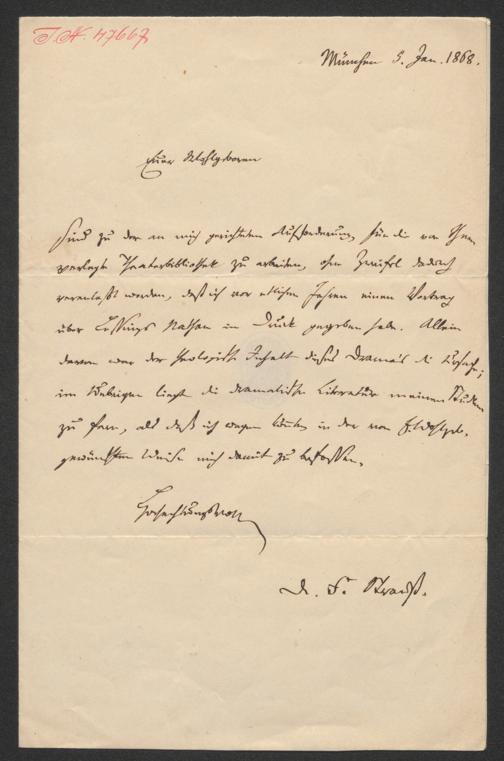 I.N. 47667
München 5. Jan. 1868.
Euer Wohlgeboren
sind zu der an mich gerichteten Aufforderung, für die von Ihnen
verlegte Theaterbibliothek zu arbeiten, ohne Zweifel dadurch
veranlaßt worden, daß ich vor etlichen Jahren einen Vortrag
über Lessings Nathan in Druck gegeben habe. Allein
davon war der theologische Inhalt dieses Drama's die Ursache;
im Uebrigen liegt die dramatische Literatur meinen Studien
zu fern, als daß ich wagen könnte, in der von E. Wohlgeb.
gewünschten Weise mich damit zu befassen.
Hochachtungsvoll
Dr. F. Strauß.